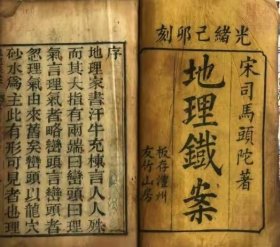 光緒己卯刻
宋司馬頭陀著
地理鐵案
板存澧州
友竹山房
序
地理家書汗牛充棟言人人殊
而其大指有兩端曰巒頭曰理
氣言理氣者略巒頭言巒頭者
忽理氣由來舊矣巒頭以龍穴
砂水為主此有形可見者也理